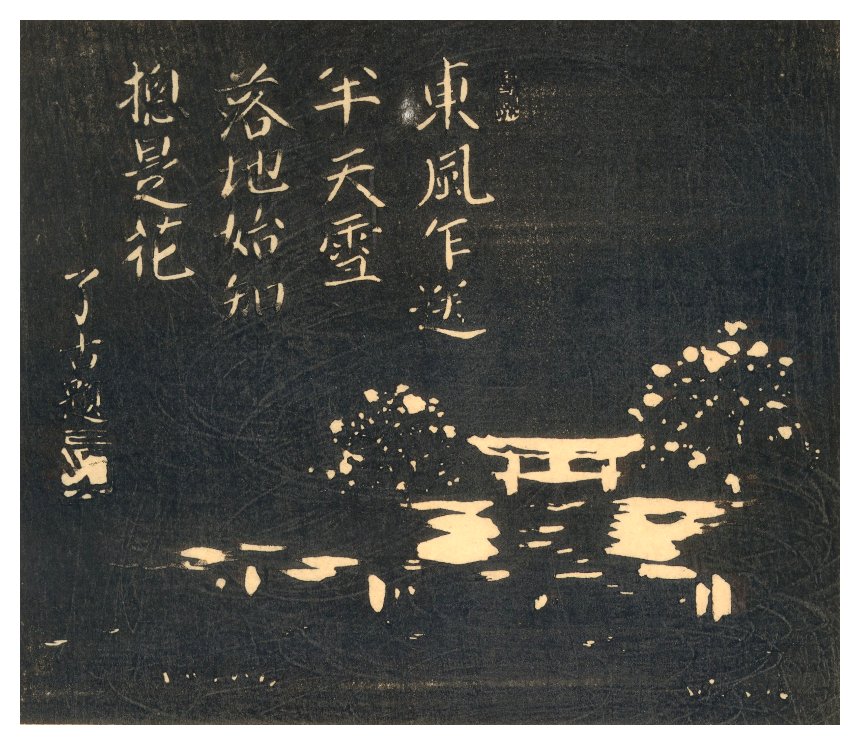 東風乍送
半天雪
落地始知
摠是花
了古題